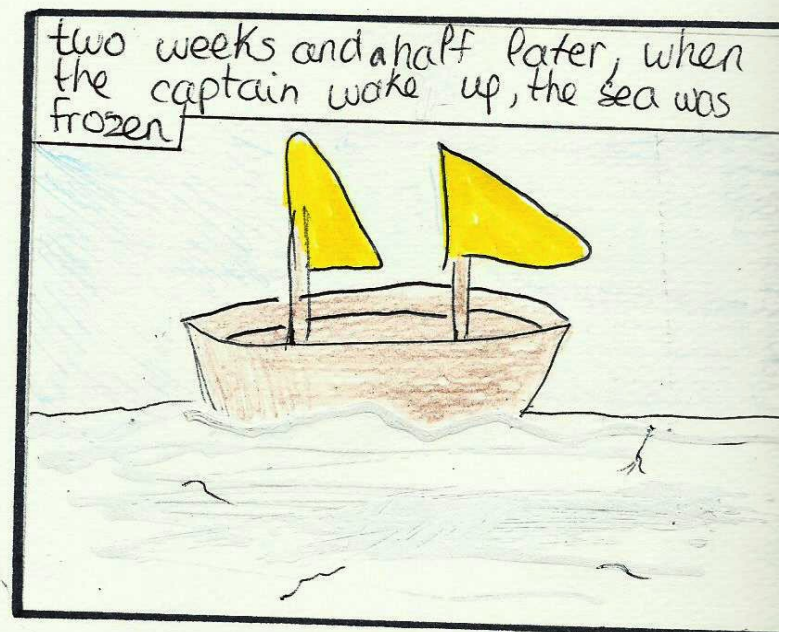 two weeks and a half later, when
the captain woke up, the sea was
frozen